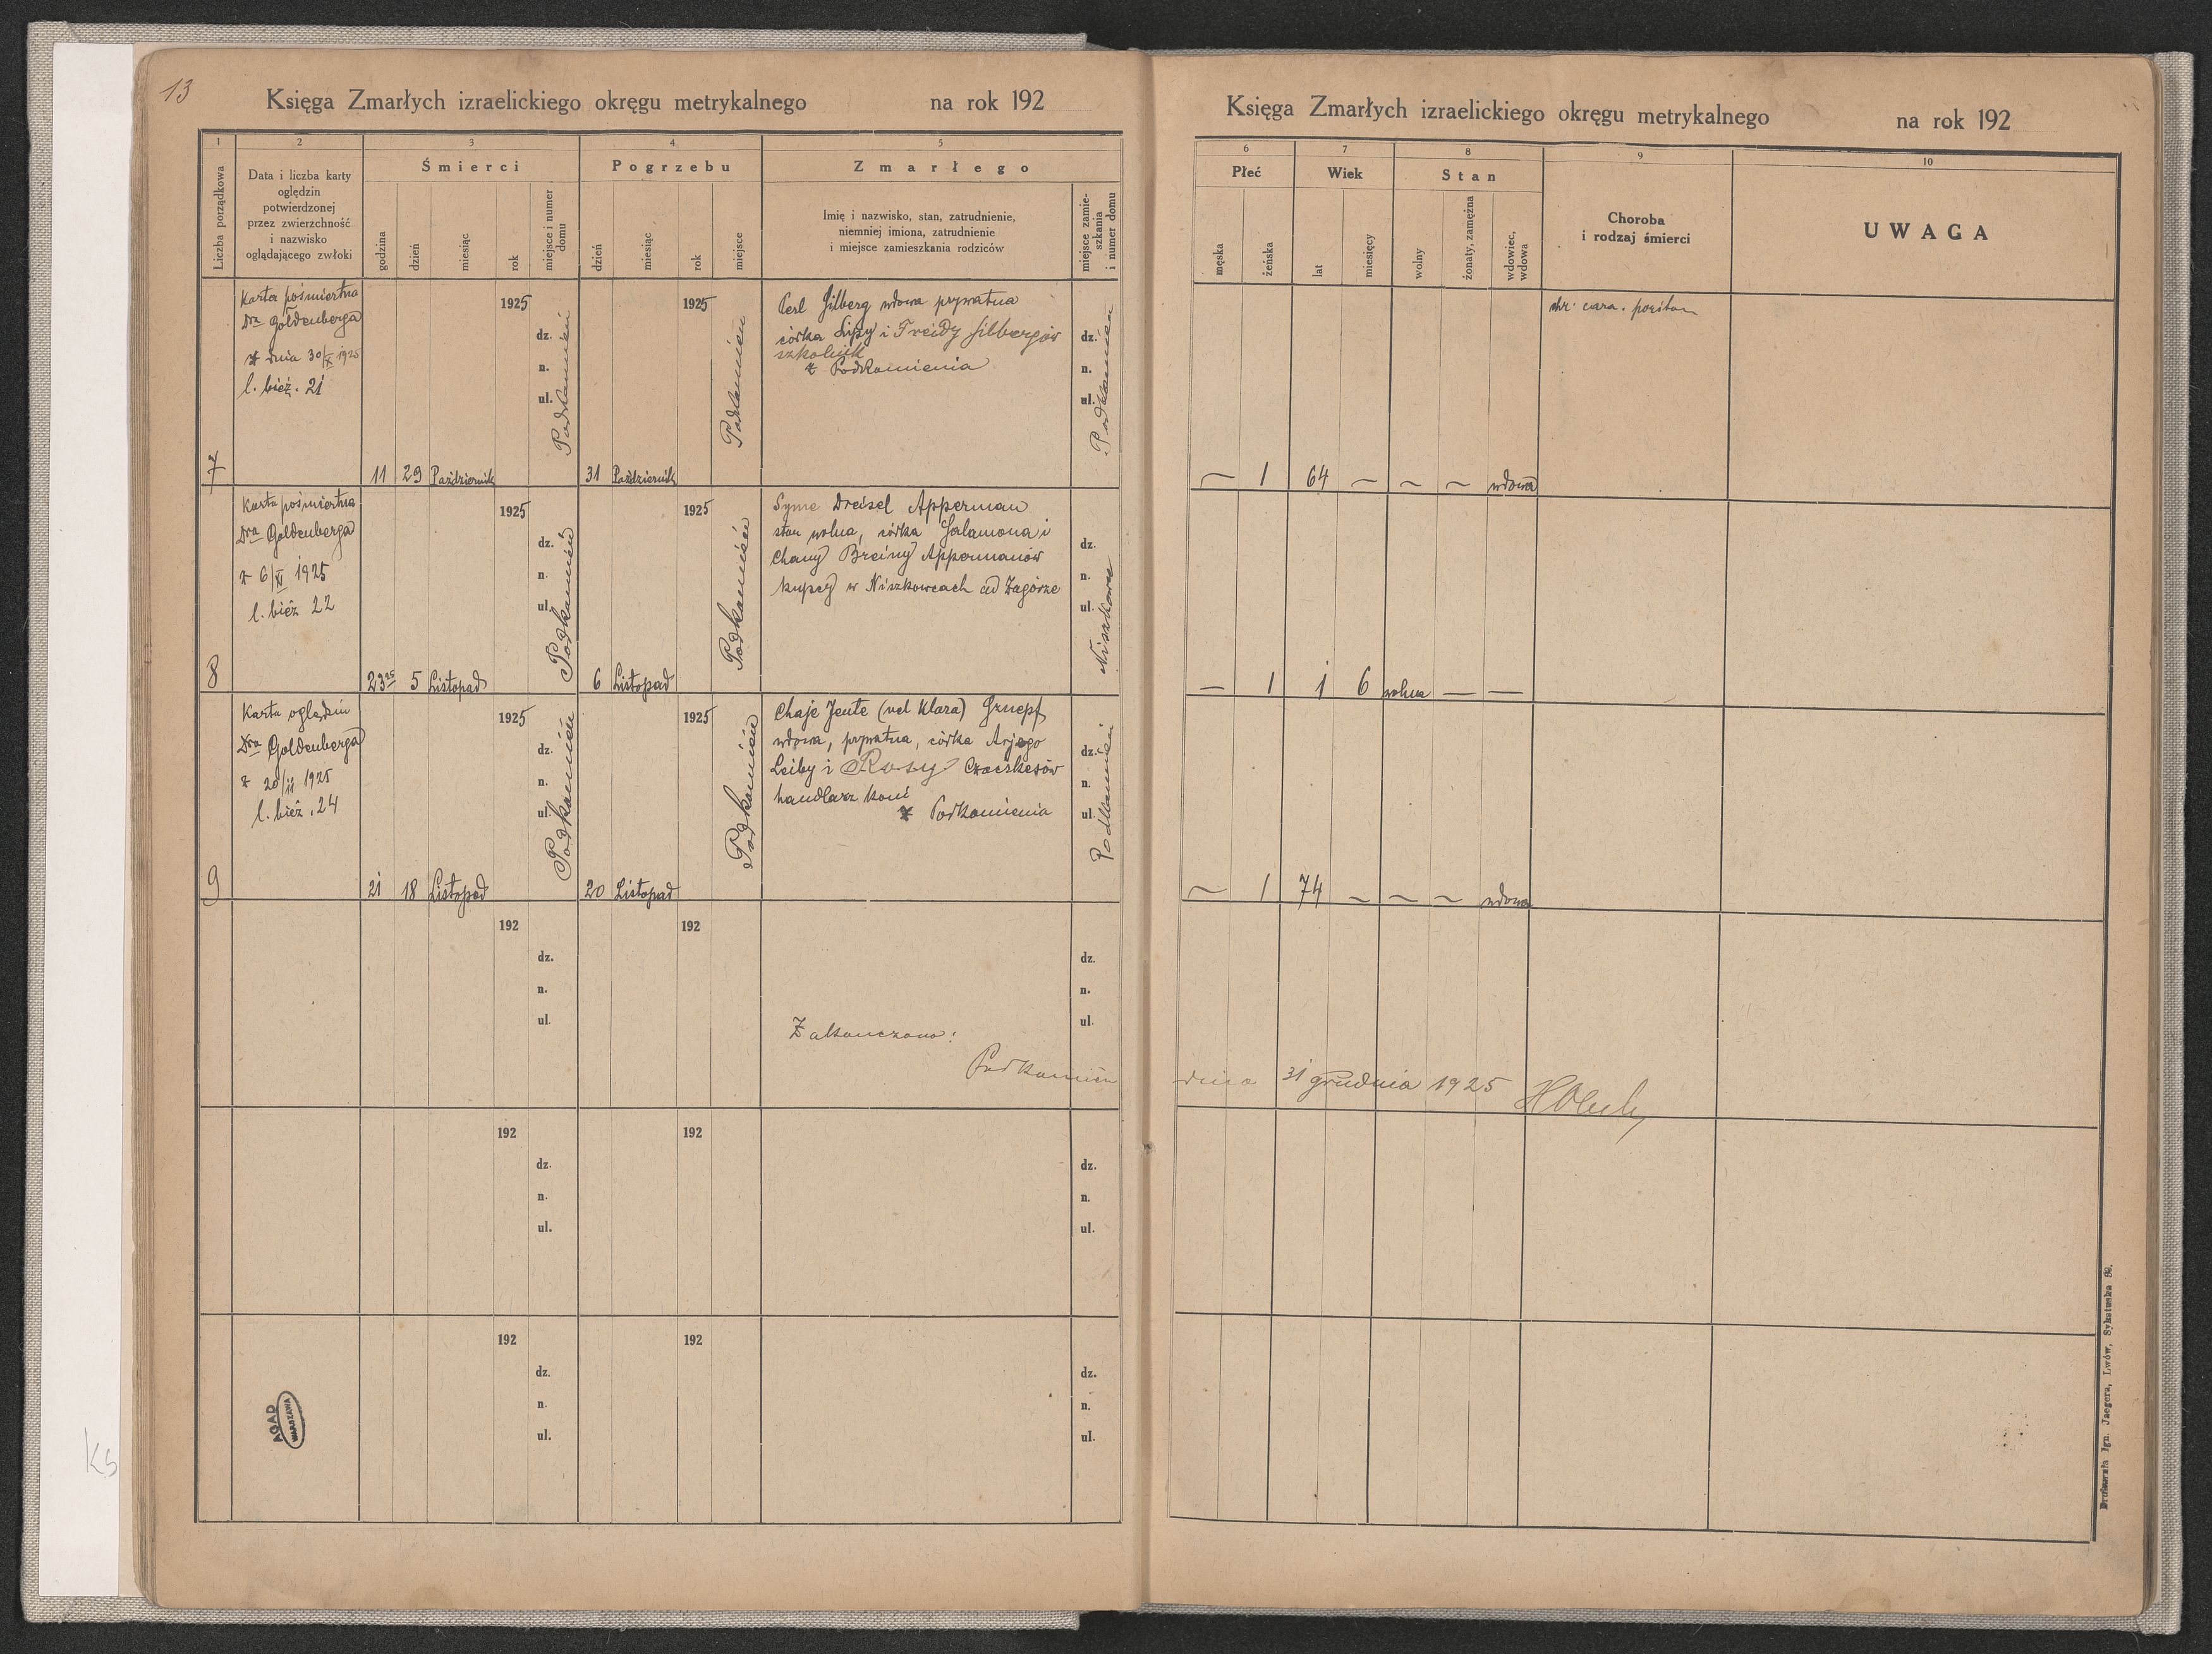 13
Księga Zmarłych izraelickiego okręgu metrykalnego na rok 192
1 2 3 4 5
Liczba porządkowa
Data i liczba karty
oględzin
potwierdzonej
przez zwierzchność
i nazwisko
oglądającego zwłoki
Śmierci
godzina dzień miesiąc rok miejsce i numer domu
Pogrzebu
dzień miesiąc rok miejsce
Zmarłego
Imię i nazwisko, stan, zatrudnienie,
niemniej imiona, zatrudnienie
i miejsce zamieszkania rodziców
miejsce zamie-
szkania
i numer domu
Karta pośmiertna
Dra Goldenberga
z dnia 30/X 1925
l. bież. 21
7
11 29 Październik 1925
dz.
n.
ul.
Podkamień
31 Październik 1925
Podkamień
Perl Silberg wdowa prywatna
córka Lipy i Freidy Silbergów
szkolnik
z Podkamienia
dz.
n.
ul.
Podkamień
Karta pośmiertna
Dra Goldenberga
z 6/XI 1925
l. bież 22
8
23 5 Listopad 1925
dz.
n.
ul.
Podkamień
6 Listopad 1925
Podkamień
Syme Dreisel Apperman
stan wolna, córka Salamona i
Chany Breiny Appermanów
kupcy w Niszkowcach ad Zagórze
dz.
n.
ul.
Karta oględzin
Dra Goldenberga
z 20/11 1925
l. bież. 24
9
21 18 Listopad 1925
dz.
n.
ul.
Podkamień
20 Listopad 1925
Podkamień
Chaje Jente (vel Klara)
wdowa, prywatna, córka Arjego
Leiby i Rosy Czaczkesów
handlarz koni
z Podkamienia
dz.
n.
ul.
Podkamień
192 192
dz. dz.
n. n.
ul. ul.
Zakończono:
Podkamień
192 192
dz. dz.
n. n.
ul. ul.
192 192
dz. dz.
n. n.
ul. ul.
AGAD
WARSZAWA
Ks
Księga Zmarłych izraelickiego okręgu metrykalnego na rok 192
6 7 8 9 10
Płeć
męska żeńska
Wiek
lat miesięcy
Stan
wolny żonaty, zamężna wdowiec, wdowa
Choroba
i rodzaj śmierci
UWAGA
— 1 64 — — — wdowa
— 1 1 6 wolna — —
— 1 74 — — — wdowa
dnia 31 grudnia 1925
Drukarnia Ign. Jaegera, Lwów, Sykstuska